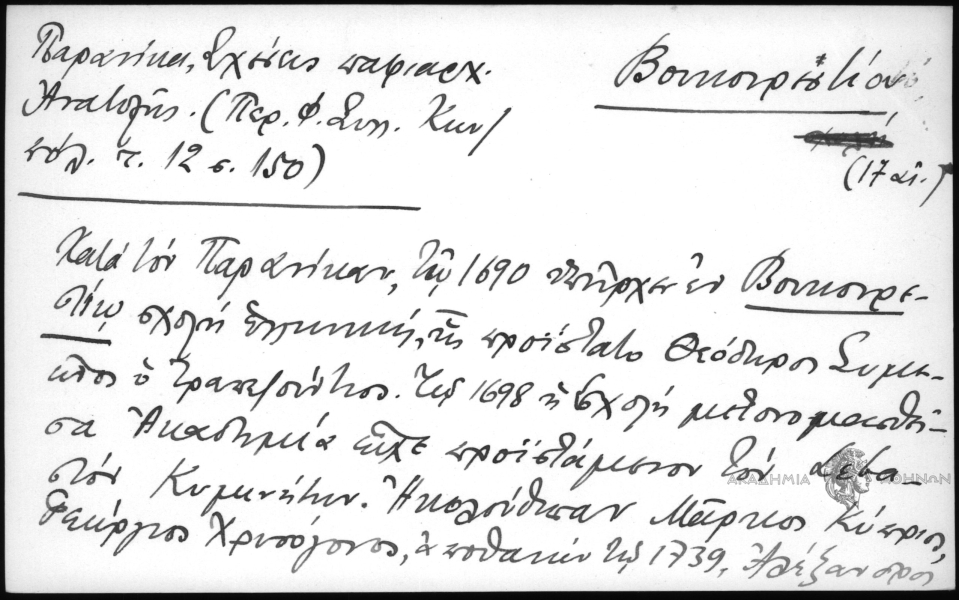 Παρανίκα, Σχέσεις πατριαρχ.
Ἀνατολῆς. (Περ. Φ. Συλ. Κων/
πόλ. τ. 12 σ. 150)
Βουκουρέστιον
(17 αἰ.)
Κατὰ τὸν Παρανίκαν, τῷ 1690 ὑπῆρχεν ἐν Βουκουρε-
στίῳ σχολὴ ἑλληνική, ἧς προΐστατο Θεόδωρος Συμε-
ὁ Τραπεζούντιος. Τῷ 1698 ἡ σχολὴ μετονομασθεῖ-
σα Ἀκαδημία εἶχε προϊστάμενον τὸν Σεβα-
στὸν Κυμινήτην. Ἠκολούθησαν Μᾶρκος Κύπριος,
Γεώργιος Χρυσόγονος, ἀποθανὼν τῷ 1739, Ἀλέξανδρος
ΑΚΑΔΗΜΙΑ ΑΘΗΝΩΝ